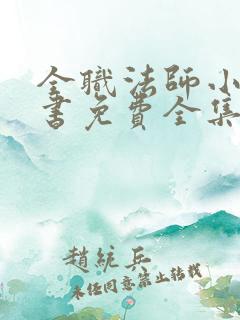 全職法師小
書免費全集
趙統兵
未任同意禁止转载